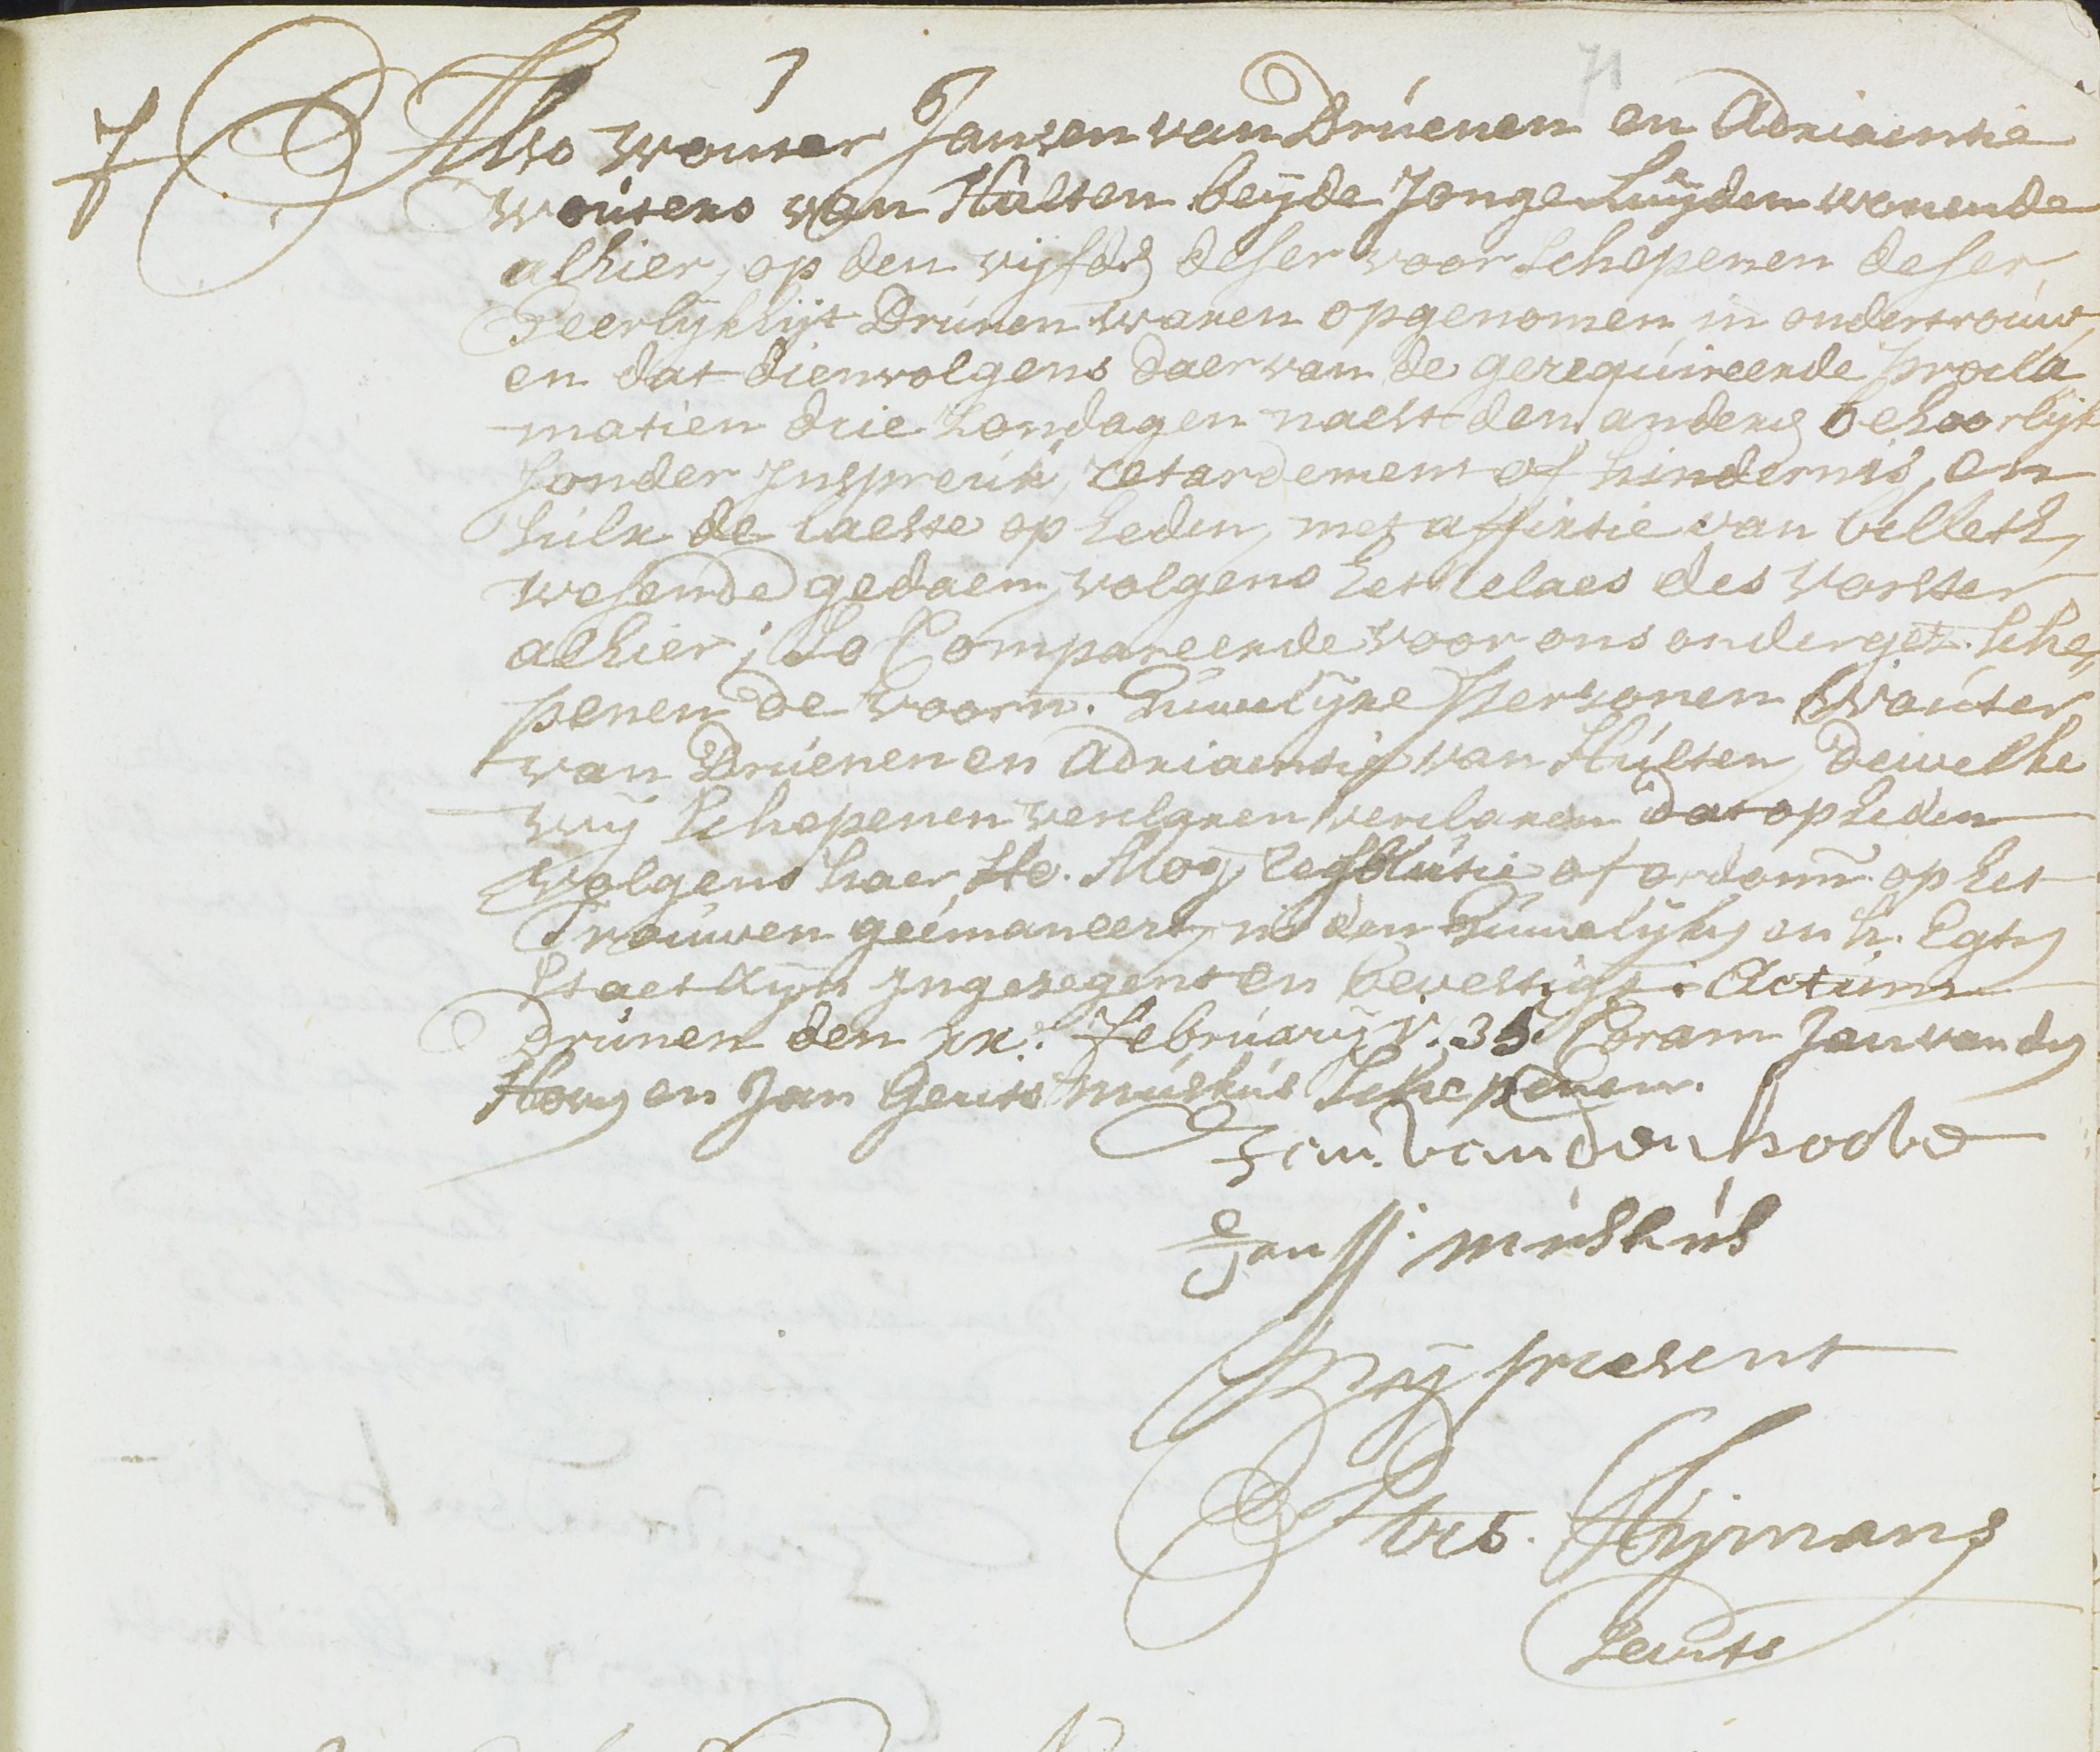 71
7 Also Wouter Jansen van Drúenen en Adriaentie
Woúters van Húlten beijde Jonge Luijden wonende
alhier, op den vijfde deser voor Schepenen deser
Heerlijkhijt Drúnen waren opgenomen in ondertroúw
en dat dienvolgens daer van de gerequireerde procla
matien drie Sondagen naest den anderen behoorlijk
Sonder Inspreúk, retardement of hindernis, en
Súlx de laeste op heden, met affixtie van billeth,
wesende gedaen, volgens het relaes des Vorster
alhier; So Compareerde voor ons onderget. Sche,
penen de voorn. Húwelijke Personen Woúter
van Drúenen en Adriaentie van Húlten, dewelke
wij Schepenen verclaren dat op heden
Volgens haer Ho. Mog, resolútie of ordonn. op het
Troúwen geëmaneert, in den Húwelijken en h. Egten
Staet zijn Ingezegent en bevestigt. Actúm
Drúnen den xx: Febrúarij 1735. Coram Jan van den
Hoven en Jan Geurts múskús Schepenen.
Jan van den hoove
Jan J. múskús
Mij present
Heijmans
Secrets